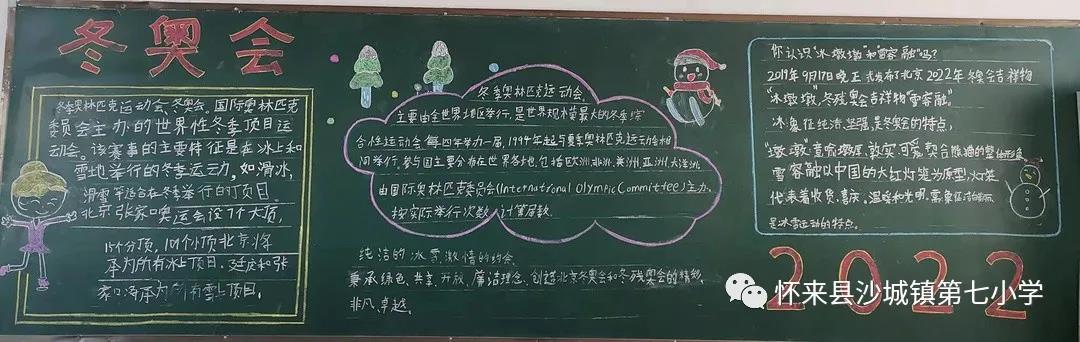 冬奥会
冬季奥林匹克运动会,冬奥会,国际奥林匹克
委员会主办的世界性冬季项目运
动会。该赛事的主要特征是在冰上和
雪地举行的冬季运动,如滑冰,
滑雪等适合在冬季举行的项目
北京张家口奥运会设7个大项,
15个分项,109个小项北京将
承办所有冰上项目,延庆和张
家口将承办所有雪上项目。
冬季奥林匹克运动会,
主要由全世界地区举行,是世界规模最大的冬季综
合性运动会,每四年举办一届,1994年起与夏季奥林匹克运动会相
间举行,参与国主要分布在世界各地,包括欧洲,非洲,美洲,亚洲,大洋洲,
由国际奥林匹克委员会(International Olympic Committee)主办,
按实际举行次数计算届数.
纯洁的冰雪,激情的约会,
秉承绿色、共享、开放、廉洁理念,创造北京冬奥会和冬残奥会的精彩,
非凡,卓越。
你认识“冰墩墩”和“雪容融”吗?
2019年9月17日晚正式发布了北京2022年冬奥会吉祥物
“冰墩墩”,冬残奥会吉祥物“雪容融”。
冰象征纯洁,坚强,是冬奥会的特点,
墩墩意喻敦厚,敦实,可爱,契合熊猫的整体形象
雪容融以中国的大红灯笼为原型,灯笼
代表着收获,喜庆。温暖和光明,雪象征洁白
是冰雪运动的特点。
2022
怀来县沙城镇第七小学